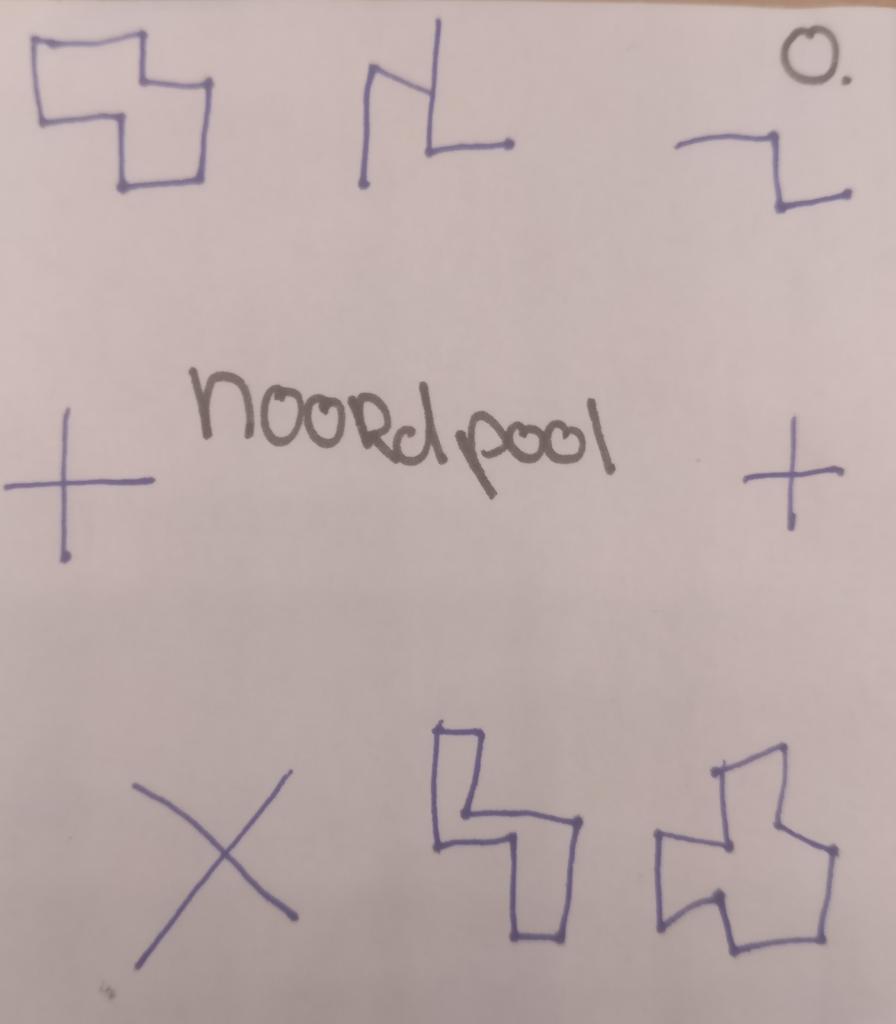 O.
noordpool